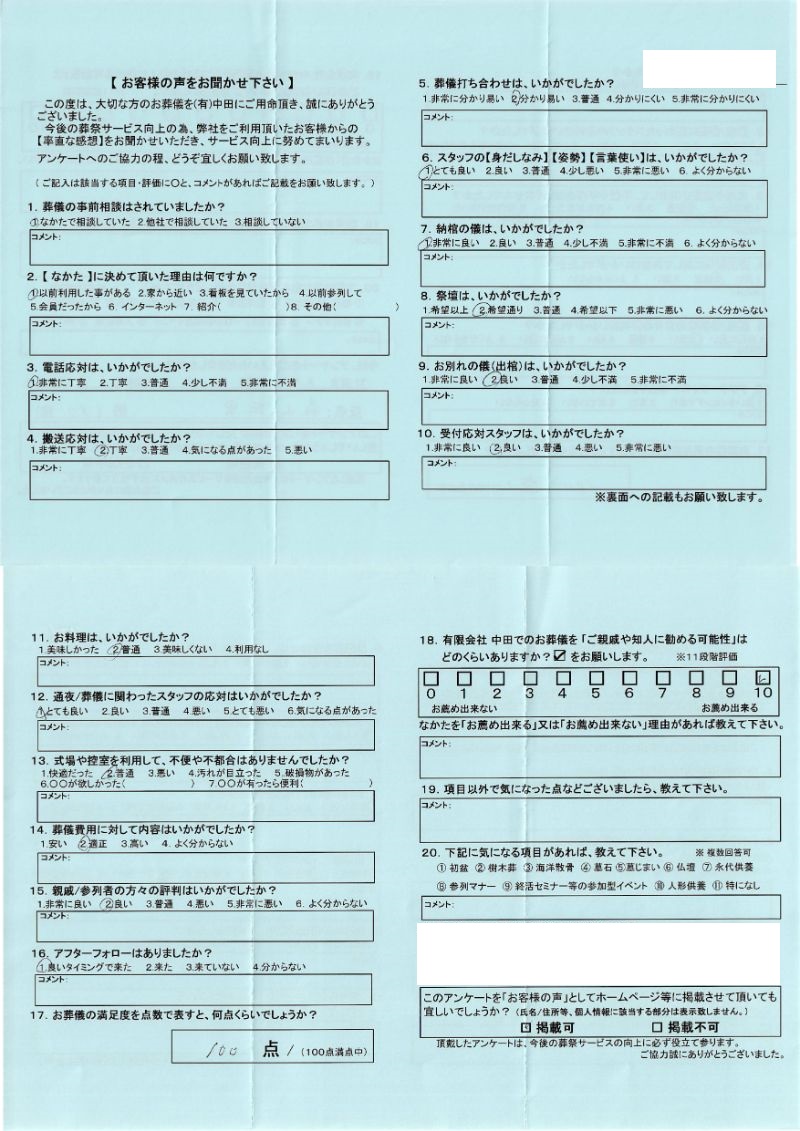 【 お客様の声をお聞かせ下さい 】
この度は、大切な方のお葬儀を(有)中田にご用命頂き、誠にありがとう
ございました。
今後の葬祭サービス向上の為、弊社をご利用頂いたお客様からの
【率直な感想】をお聞かせいただき、サービス向上に努めてまいります。
アンケートへのご協力の程、どうぞ宜しくお願い致します。
( ご記入は該当する項目・評価に〇と、コメントがあればご記載をお願い致します。 )
1. 葬儀の事前相談はされていましたか?
1.なかたで相談していた 2.他社で相談していた 3.相談していない
コメント:
2. 【 なかた 】に決めて頂いた理由は何ですか?
1.以前利用した事がある 2.家から近い 3.看板を見ていたから 4.以前参列して
5.会員だったから 6. インターネット 7. 紹介( )8. その他( )
コメント:
3. 電話応対は、いかがでしたか?
1.非常に丁寧 2.丁寧 3.普通 4.少し不満 5.非常に不満
コメント:
4. 搬送応対は、いかがでしたか?
1.非常に丁寧 2.丁寧 3.普通 4.気になる点があった 5.悪い
コメント:
5. 葬儀打ち合わせは、いかがでしたか?
1.非常に分かり易い 2.分かり易い 3.普通 4.分かりにくい 5.非常に分かりにくい
コメント:
6. スタッフの【身だしなみ】【姿勢】【言葉使い】は、いかがでしたか?
1.とても良い 2.良い 3.普通 4.少し悪い 5.非常に悪い 6. よく分からない
コメント:
7. 納棺の儀は、いかがでしたか?
1.非常に良い 2.良い 3.普通 4.少し不満 5.非常に不満 6. よく分からない
コメント:
8. 祭壇は、いかがでしたか?
1.希望以上 2.希望通り 3.普通 4.希望以下 5.非常に悪い 6. よく分からない
コメント:
9. お別れの儀(出棺)は、いかがでしたか?
1.非常に良い 2.良い 3.普通 4.少し不満 5.非常に不満
コメント:
10. 受付応対スタッフは、いかがでしたか?
1.非常に良い 2.良い 3.普通 4.悪い 5.非常に悪い
コメント:
※裏面への記載もお願い致します。
11. お料理は、いかがでしたか?
1.美味しかった 2.普通 3.美味しくない 4.利用なし
コメント:
12. 通夜/葬儀に関わったスタッフの応対はいかがでしたか?
1.とても良い 2.良い 3.普通 4.悪い 5.とても悪い 6.気になる点があった
コメント:
13. 式場や控室を利用して、不便や不都合はありませんでしたか?
1.快適だった 2.普通 3.悪い 4.汚れが目立った 5.破損物があった
6.〇〇が欲しかった( ) 7.〇〇が有ったら便利( )
コメント:
14. 葬儀費用に対して内容はいかがでしたか?
1.安い 2.適正 3.高い 4. よく分からない
コメント:
15. 親戚/参列者の方々の評判はいかがでしたか?
1.非常に良い 2.良い 3.普通 4.悪い 5.非常に悪い 6. よく分からない
コメント:
16. アフターフォローはありましたか?
1.良いタイミングで来た 2.来た 3.来ていない 4.分からない
コメント:
17. お葬儀の満足度を点数で表すと、何点くらいでしょうか?
100 点 / (100点満点中)
18. 有限会社 中田でのお葬儀を「ご親戚や知人に勧める可能性」は
どのくらいありますか?☑をお願いします。 ※11段階評価
0 1 2 3 4 5 6 7 8 9 10
お薦め出来ない お薦め出来る
なかたを「お薦め出来る」又は「お薦め出来ない」理由があれば教えて下さい。
コメント:
19. 項目以外で気になった点などございましたら、教えて下さい。
コメント:
20. 下記に気になる項目があれば、教えて下さい。 ※ 複数回答可
① 初盆 ② 樹木葬 ③ 海洋散骨 ④ 墓石 ⑤墓じまい ⑥ 仏壇 ⑦ 永代供養
⑧ 参列マナー ⑨ 終活セミナー等の参加型イベント ⑩ 人形供養 ⑪ 特になし
コメント:
このアンケートを「お客様の声」としてホームページ等に掲載させて頂いても
宜しいでしょうか? (氏名/住所等、個人情報に該当する部分は表示致しません。)
☑ 掲載可 □ 掲載不可
頂戴したアンケートは、今後の葬祭サービスの向上に必ず役立て参ります。
ご協力誠にありがとうございました。